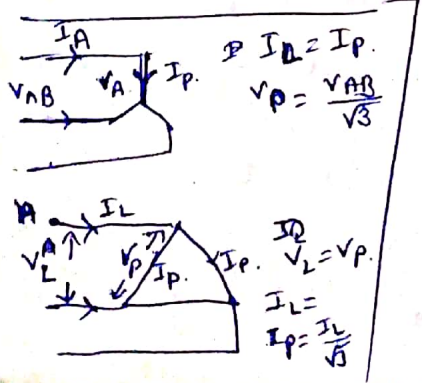 I_A
V_AB V_A I_P.
I_L = I_P.
V_P = V_AB/√3
A I_L
V_L V_P I_P. I_P.
V_L = V_P.
I_L =
I_P = I_L/√3